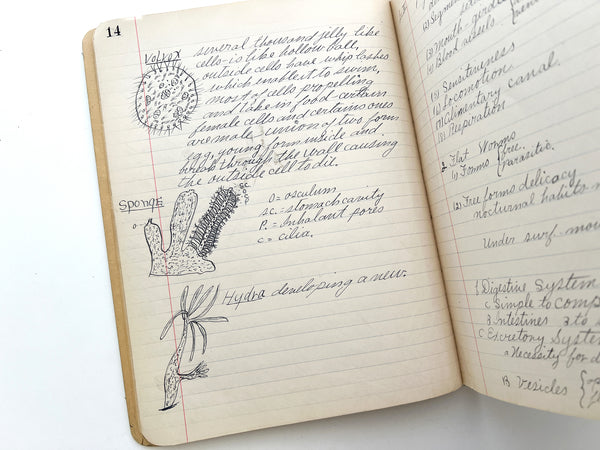 14
Volvox
several thousand jelly like
cells-is like hollow ball,
outside cells have whip lashes
which enable it to swim,
most of cells propelling
and take in food-certain
female cells and certain ones
are male, union of two form
egg, young form inside and
break through the wall causing
the outside cell to die.
Sponge
O
SC
O = osculum
SC. = stomach cavity
P. = Inhalant pores
C = cilia.
Hydra developing a new.
(2) mouth-
(3) Blood vessels.
(1) Sensitiveness
(2) Locomotion.
Alimentary canal.
(2) Respiration
2. Flat Worms
(1) Forms { free.
parasitic.
(2) Free forms delicacy
nocturnal habits
Under surf-mou
1 Digestive System
C Simple to comp
B Intestines 2 to
C Excretory System
a Necessity for d
B Vesicles {